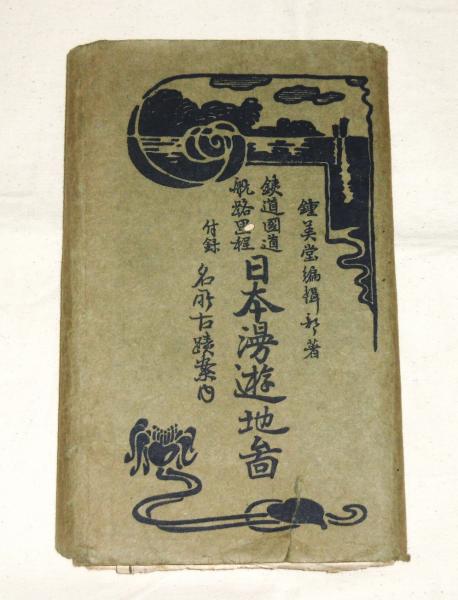 鍾美堂編輯部著
鉄道國道
航路里程
日本漫遊地啚
付録
名所古蹟案内